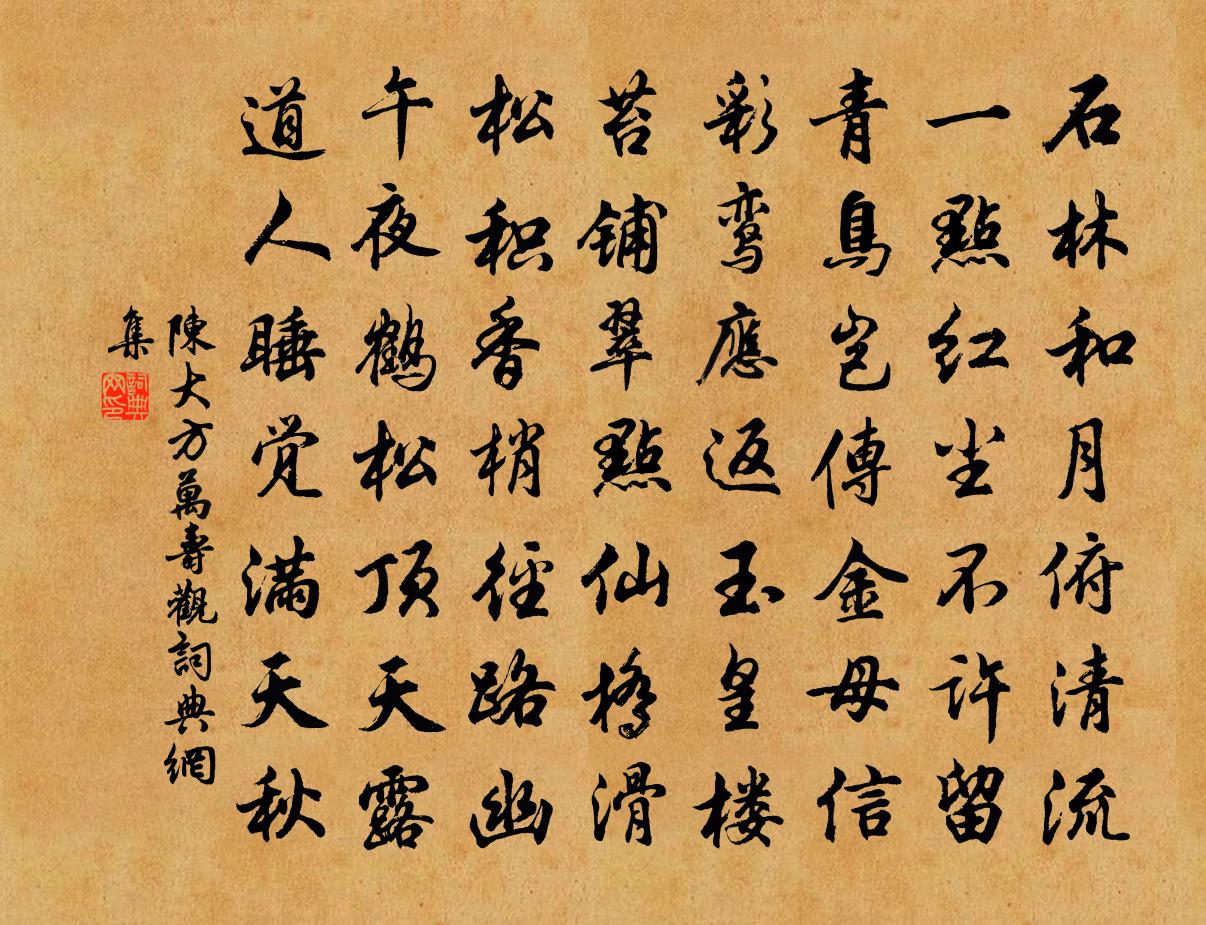 石林和月俯清流
一點红尘不許留
青鳥岂傳金母信
彩鸾應返玉皇楼
苔鋪翠點仙橋滑
松积香梢徑路幽
午夜鶴松顶天露
道人睡觉满天秋
陳大方萬壽觀詞典網
集
詞典
网印